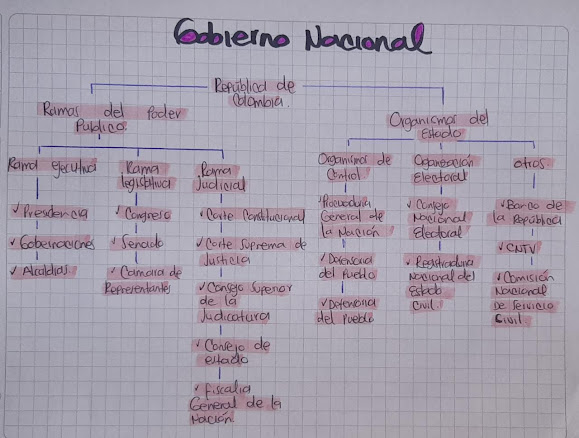 Gobierno Nacional
República de
Colombia.
Ramas del Poder
Publico.
Organismos del
Estado
Rama ejecutiva
✓ Presidencia
✓ Gobernaciones
✓ Alcaldias
Rama
legislativa
✓ Congreso
✓ Senado
✓ Cámara de
Representantes
Rama
Judicial
✓ Corte Constitucional
✓ Corte Suprema de
Justicia
✓ Consejo Superior
de la
Judicatura
✓ Consejo de
estado
✓ fiscalia
General de la
Nación.
Organismos de
Control
✓ Procuraduria
General de
la Nación
✓ Defensoria
del Pueblo
✓ Defensoria
del Pueblo
Organización
Electoral
✓ Consejo
Nacional
Electoral
✓ Registraduria
Nacional del
Estado
Civil.
otros
✓ Banco de
la República
✓ CNTV
✓ Comisión
Nacional
De Servicio
Civil